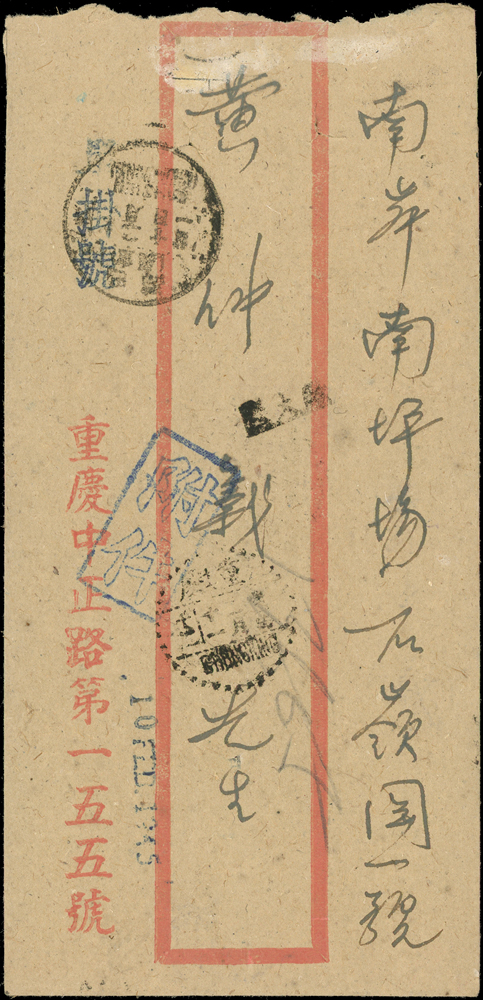 南岸南坪場石嶺園一號
黃仲載先生
重慶中正路第一五五號
掛號
附件
CHUNGKING
10 FEB. 1945